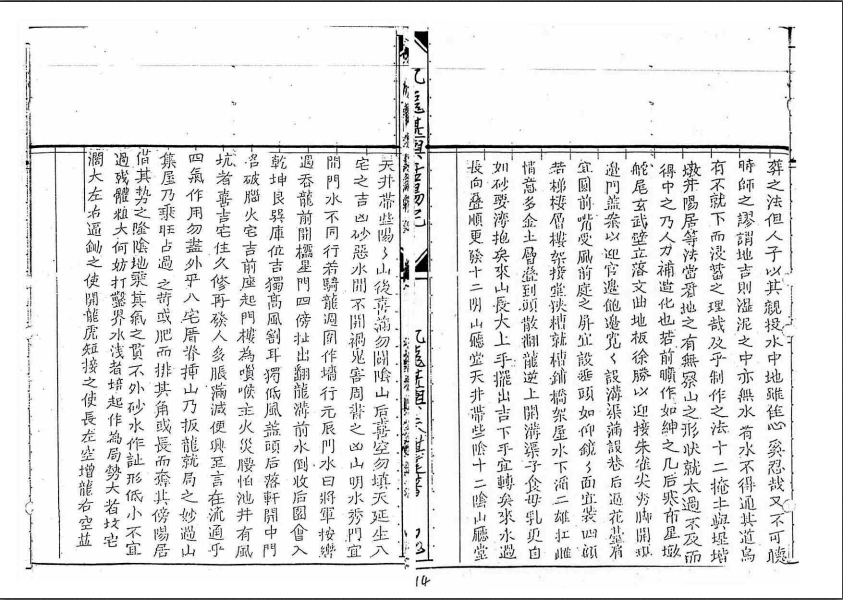 葬之法但人子以其親投水中地雖佳心奚忍哉又不可聽
時師之謬謂地吉則溫泥之中亦無水有水不得通其道烏
有不就下而浸蓄之理哉及乎制作之法十二掩土與堤堦
墩井陽居等法當看地之有無察山之形狀就太過不及而
得中之乃人力補造化也若前曠作如紳之几后寒布星墩
舵尾玄武壁立落文曲地板徐勝以迎接朱雀尖秀脚開
邊門蓋案以迎官邊飽邊寬設溝渠滿設巷后逼花臺肩
宜圓前嘴受風前庭之屏宜設垂頭如仰鏡面宜裝四顧
若梯棲層樓架接堂狹槽就槽鋪橋架屋水下滴二雄扛雌
情意多金土層疊到頭散翻龍逆上開溝渠子食母乳更白
如砂要灣抱奚來山長大上手擺出吉下手宜轉奚來水過
長向疊順更驗十二明山廳堂天井帶些陰十二陰山廳堂
天井帶些陽山後喜滿勿鬪陰山后喜空勿填天延生八
宅之吉凶砂惡水間不開禍鬼害周背之凶山明水秀門宜
開門水不同行若騎龍週圍作墻行元辰門水曰將軍按轡
過吞龍前開欞星門四傍扯出翻龍溝前水倒收后園會入
乾坤艮巽庫位吉獨高風劉耳獨低風蓋頭后落軒開中門
名破腦火宅吉前座起門樓為嗩喉主火災腰怕池井有風
坑者喜吉宅住久修再發人多脹滿減便興至言在流通乎
四氣作用勿盡外乎八宅厝脊揷山乃扳龍就局之妙過山
集屋乃乘旺占過之苛或肥而排其角或長而齊其傍陽居
借其势之隆陰地乘其氣之貫不外砂水作証形低小不宜
過殘體粗大何妨打鑿界水浅者培起作為局勢大者坟宅
濶大左右逼鋤之使開龍虎短接之使長左空增龍右空益
14